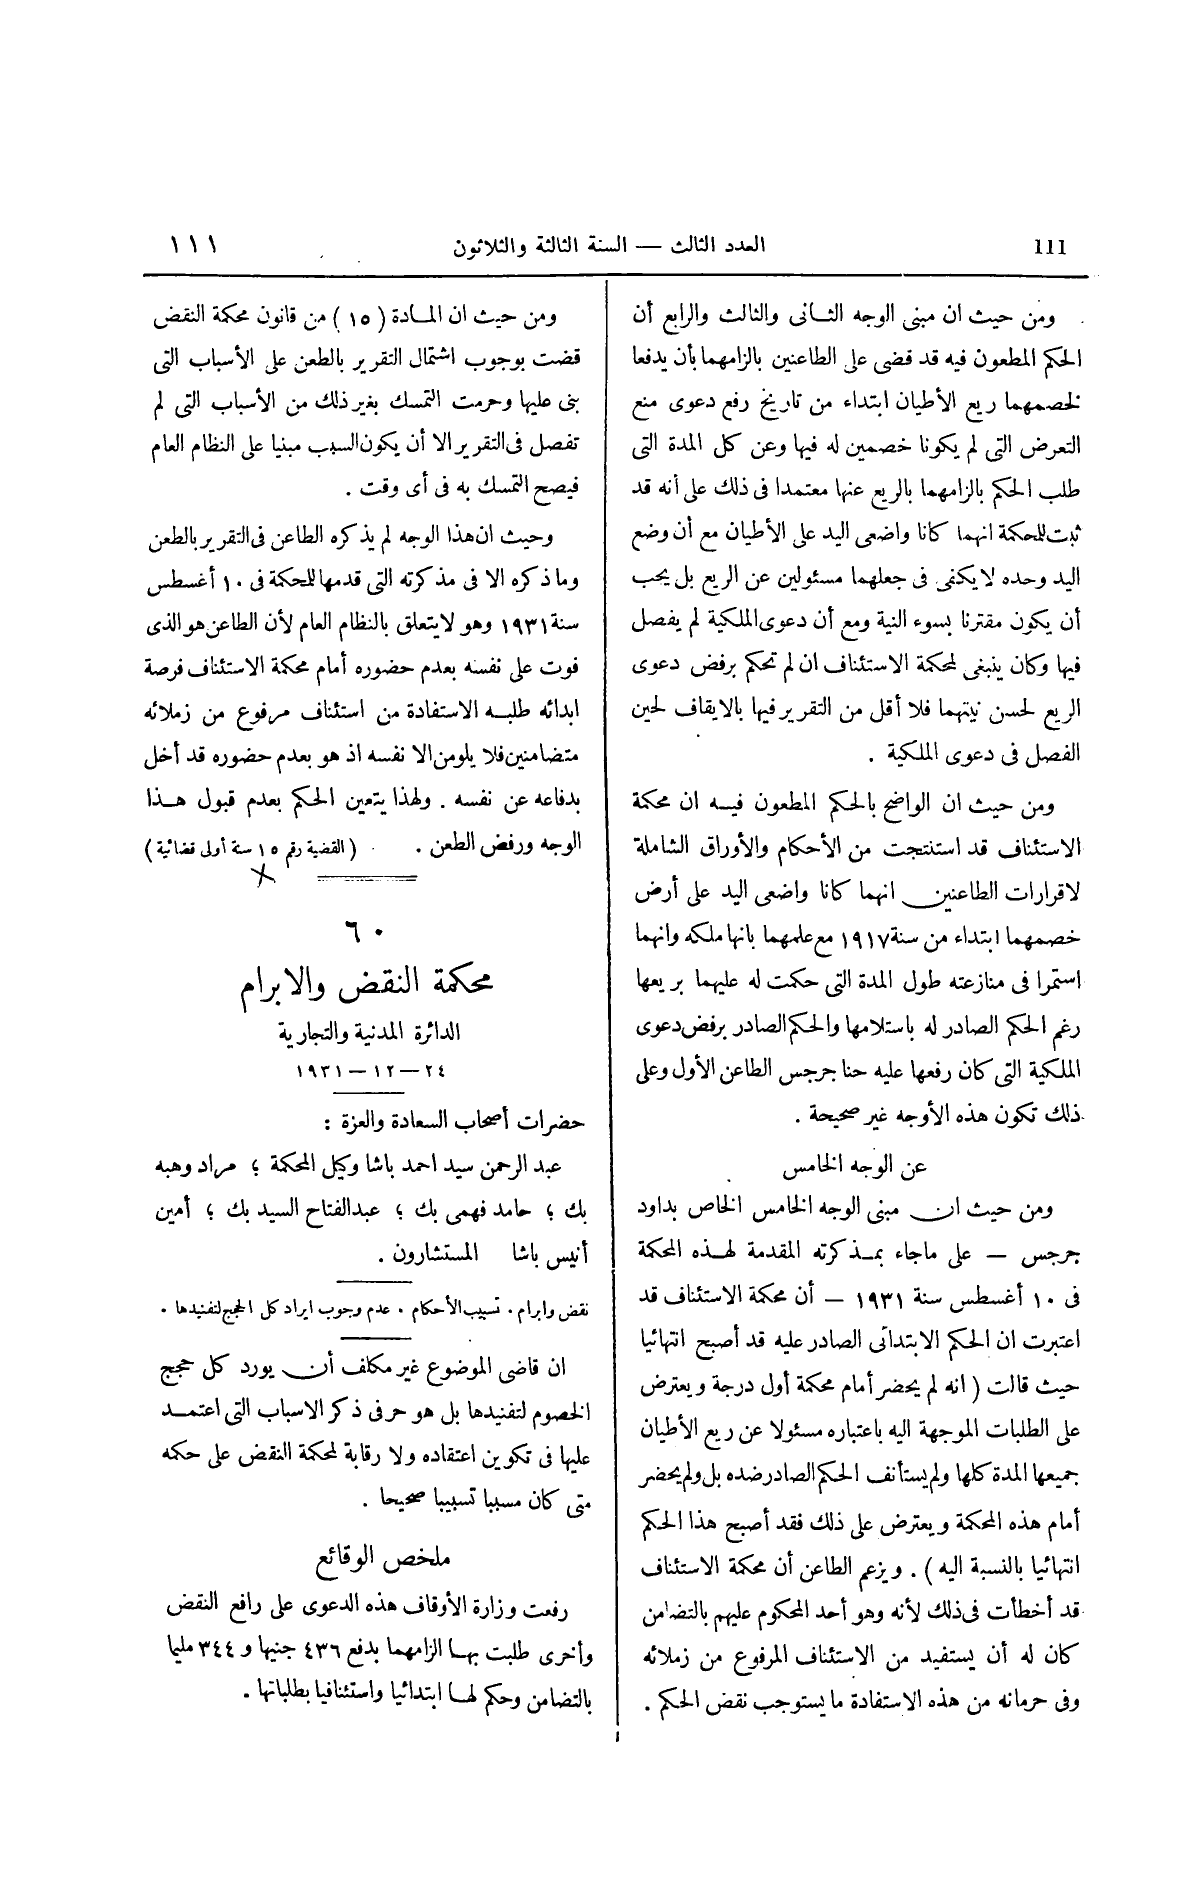 111 العدد الثالث — السنة الثالثة والثلاثون ١١١
ومن حيث ان مبنى الوجه الثانى والثالث والرابع أن
الحكم المطعون فيه قد قضى على الطاعنين بالزامهما بأن يدفعا
لخصمهما ريع الأطيان ابتداء من تاريخ رفع دعوى منع
التعرض التى لم يكونا خصمين له فيها وعن كل المدة التى
طلب الحكم بالزامهما بالريع عنها معتمدا فى ذلك على أنه قد
ثبت للمحكمة انهما كانا واضعى اليد على الأطيان مع أن وضع
اليد وحده لا يكفى فى جعلهما مسئولين عن الريع بل يجب
أن يكون مقترنا بسوء النية ومع أن دعوى الملكية لم يفصل
فيها وكان ينبغى لمحكمة الاستئناف ان لم تحكم برفض دعوى
الريع لحسن نيتهما فلا أقل من التقرير فيها بالايقاف لحين
الفصل فى دعوى الملكية .
ومن حيث ان الواضح بالحكم المطعون فيه ان محكمة
الاستئناف قد استنتجت من الأحكام والأوراق الشاملة
لاقرارات الطاعنين انهما كانا واضعى اليد على أرض
خصمهما ابتداء من سنة ١٩١٧ مع علمهما بانها ملكه وانهما
استمرا فى منازعته طول المدة التى حكمت له عليهما بريعها
رغم الحكم الصادر له باستلامها والحكم الصادر برفض دعوى
الملكية التى كان رفعها عليه حنا جرجس الطاعن الأول وعلى
ذلك تكون هذه الأوجه غير صحيحة .
عن الوجه الخامس
ومن حيث ان مبنى الوجه الخامس الخاص بداود
جرجس — على ماجاء بمذكرته المقدمة لهذه المحكمة
فى ١٠ أغسطس سنة ١٩٣١ — أن محكمة الاستئناف قد
اعتبرت ان الحكم الابتدائى الصادر عليه قد أصبح انتهائيا
حيث قالت ( انه لم يحضر أمام محكمة أول درجة ويعترض
على الطلبات الموجهة اليه باعتباره مسئولا عن ريع الأطيان
جميعها المدة كلها ولم يستأنف الحكم الصادر ضده بل ولم يحضر
أمام هذه المحكمة ويعترض على ذلك فقد أصبح هذا الحكم
انتهائيا بالنسبة اليه ) . ويزعم الطاعن أن محكمة الاستئناف
قد أخطأت فى ذلك لأنه وهو أحد المحكوم عليهم بالتضامن
كان له أن يستفيد من الاستئناف المرفوع من زملائه
وفى حرمانه من هذه الاستفادة ما يستوجب نقض الحكم .
ومن حيث ان المادة ( ١٥ ) من قانون محكمة النقض
قضت بوجوب اشتمال التقرير بالطعن على الأسباب التى
بنى عليها وحرمت التمسك بغير ذلك من الأسباب التى لم
تفصل فى التقرير الا أن يكون السبب مبنيا على النظام العام
فيصح التمسك به فى أى وقت .
وحيث ان هذا الوجه لم يذكره الطاعن فى التقرير بالطعن
وما ذكره الا فى مذكرته التى قدمها للمحكمة فى ١٠ أغسطس
سنة ١٩٣١ وهو لا يتعلق بالنظام العام لأن الطاعن هو الذى
فوت على نفسه بعدم حضوره أمام محكمة الاستئناف فرصة
ابدائه طلبه الاستفادة من استئناف مرفوع من زملائه
متضامنين فلا يلومن الا نفسه اذ هو بعدم حضوره قد أخل
بدفاعه عن نفسه . ولهذا يتعين الحكم بعدم قبول هذا
الوجه ورفض الطعن . ( القضية رقم ١٥ سنة أولى قضائية )
٦٠
محكمة النقض والابرام
الدائرة المدنية والتجارية
٢٤ — ١٢ — ١٩٣١
حضرات أصحاب السعادة والعزة :
عبد الرحمن سيد احمد باشا وكيل المحكمة ؛ مراد وهبه
بك ؛ حامد فهمى بك ؛ عبد الفتاح السيد بك ؛ أمين
أنيس باشا المستشارون .
نقض وابرام . تسبيب الأحكام . عدم وجوب ايراد كل الحجج لتفنيدها .
ان قاضى الموضوع غير مكلف أن يورد كل حجج
الخصوم لتفنيدها بل هو حر فى ذكر الاسباب التى اعتمد
عليها فى تكوين اعتقاده ولا رقابة لمحكمة النقض على حكمه
متى كان مسببا تسبيبا صحيحا .
ملخص الوقائع
رفعت وزارة الأوقاف هذه الدعوى على رافع النقض
وأخرى طلبت بها الزامهما بدفع ٤٣٦ جنيها و ٣٤٤ مليما
بالتضامن وحكم لها ابتدائيا واستئنافيا بطلباتها .